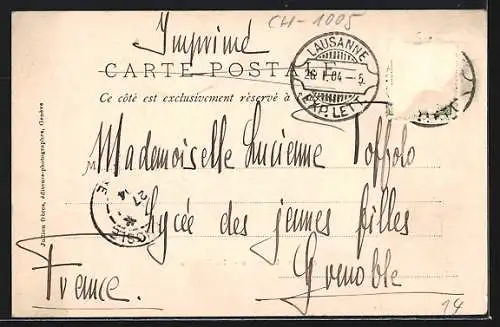 CH-1005
Imprimé
CARTE POSTALE
Ce côté est exclusivement réservé à
LAUSANNE
26.I.04-5
EXP. LETT.
Mademoiselle Lucienne Toffolo
Lycée des jeunes filles
Grenoble
France.
Jullien frères, éditeurs-photographes, Genève
27
14